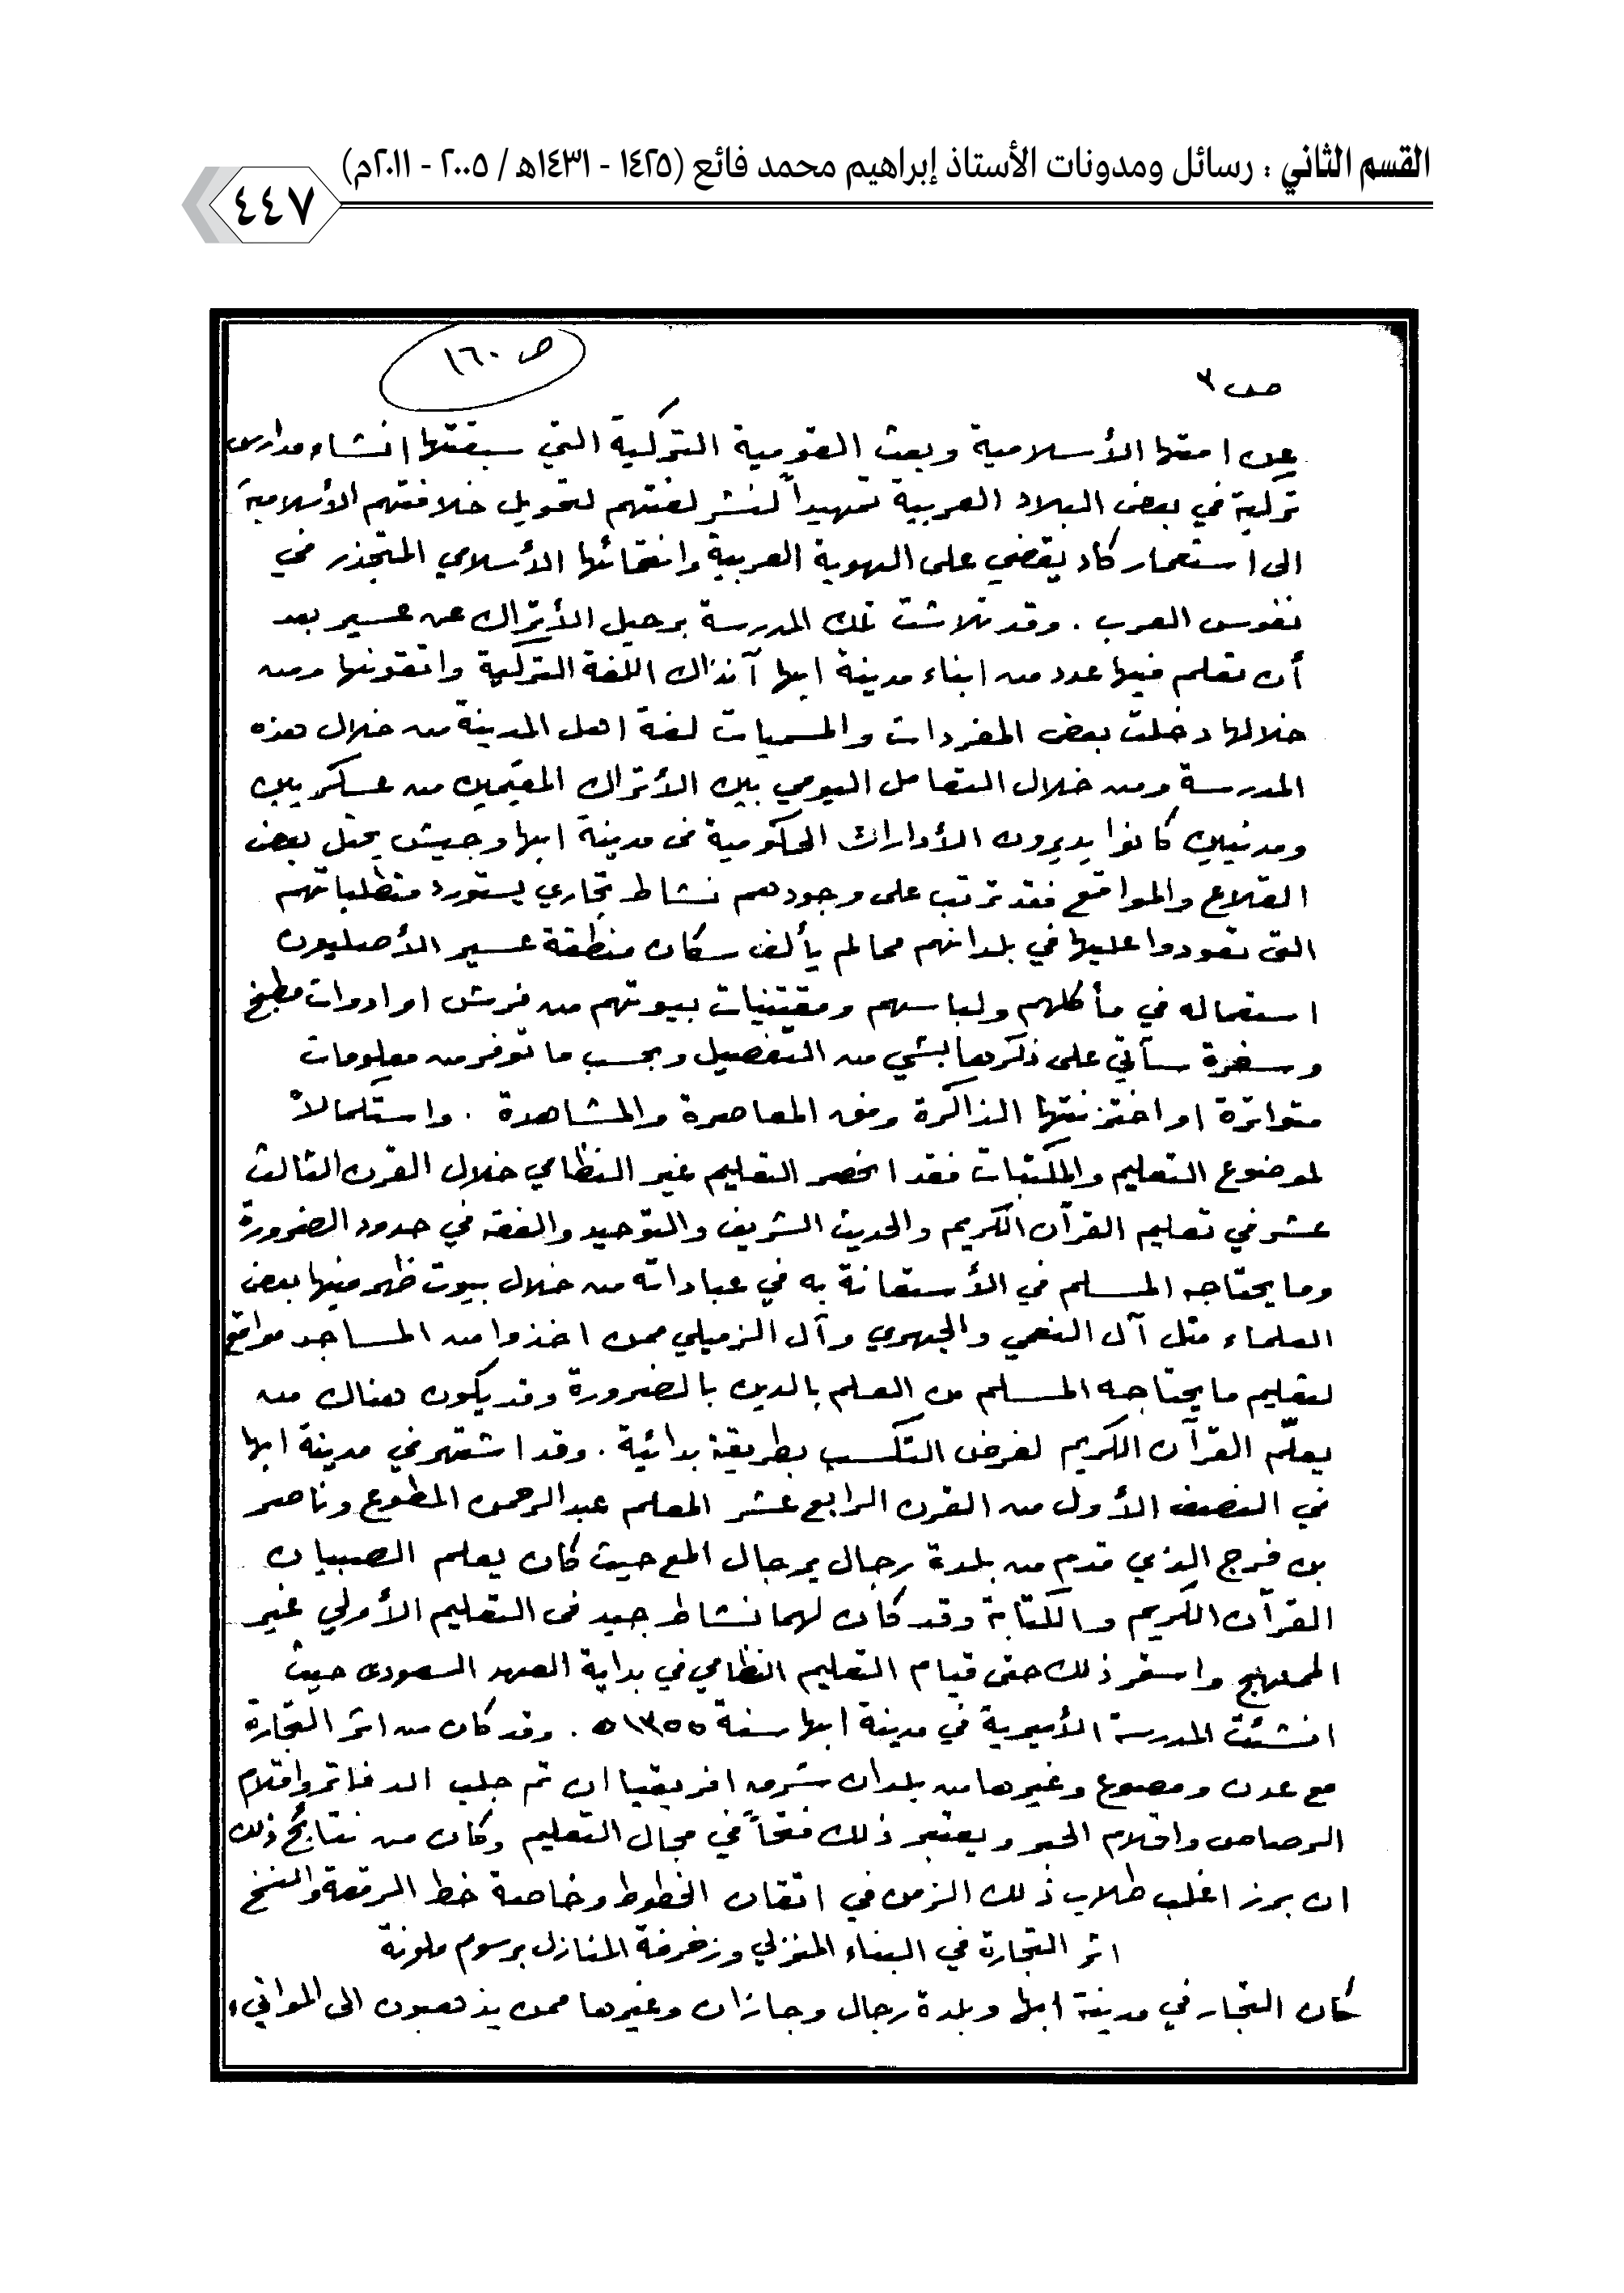 القسم الثاني : رسائل ومدونات الأستاذ إبراهيم محمد فائع (١٤٢٥ - ١٤٣١هـ / ٢٠٠٥ - ٢٠١١م)
٤٤٧
ص ١٦٠
ص ٣
عن امتها الأسلامية وبعث القومية التركية التي سبقتها انشاء مدارس
تركية في بعض البلاد العربية تمهيداً لنشر لغتهم لتحويل خلافتهم الأسلامية
الى استعمار كاد يقضي على الهوية العربية وانتمائها الأسلامي المتجذر في
نفوس العرب . وقد تلاشت تلك المدرسة برحيل الأتراك عن عسير بعد
أن تعلم فيها عدد من ابناء مدينة ابها آنذاك اللغة التركية واتقونها ومن
خلالها دخلت بعض المفردات والمسميات لغة اهل المدينة من خلال هذه
المدرسة ومن خلال التعامل اليومي بين الأتراك المقيمين من عسكريين
ومدنيين كانوا يديرون الأدارات الحكومية في مدينة ابها وجيش يحتل بعض
القلاع والمواقع فقد ترتب على وجودهم نشاط تجاري يستورد متطلباتهم
التى تعودوا عليها في بلدانهم مما لم يألف سكان منطقة عسير الأصليون
استعماله في مأكلهم ولباسهم ومقتنيات بيوتهم من فرش او ادوات مطبخ
وسفرة سآتي على ذكرها بشي من التفصيل وبحسب ما توفر من معلومات
متواترة او اختزنتها الذاكرة وفق المعاصرة والمشاهدة . واستكمالاً
لموضوع التعليم والمكتبات فقد انحصر التعليم غير النظامي خلال القرن الثالث
عشر في تعليم القرآن الكريم والحديث الشريف والتوحيد والفقه في حدود الضرورة
وما يحتاجه المسلم في الأستعانة به في عباداته من خلال بيوت ظهر فيها بعض
العلماء مثل آل النعمي والجهوي وآل الزميلي ممن اخذوا من المساجد مواقع
لتعليم ما يحتاجه المسلم من العلم بالدين بالضرورة وقد يكون هناك من
يعلّم القرآن الكريم لغرض التكسب بطريقة بدائية . وقد اشتهر في مدينة ابها
في النصف الأول من القرن الرابع عشر المعلم عبدالرحمن المطوع وناصر
بن فرج الذي قدم من بلدة رجال برجال المع حيث كان يعلم الصبيان
القرآن الكريم والكتابة وقد كان لهما نشاط جيد في التعليم الأولي غير
الممنهج واستمر ذلك حتى قيام التعليم النظامي في بداية العهد السعودى حيث
انشئت المدرسة الأميرية في مدينة ابها سنة ١٣٥٥ه . وقد كان من اثر التجارة
مع عدن ومصوع وغيرها من بلدان شرق افريقيا ان تم جلب الدفاتر واقلام
الرصاص واقلام الحبر ويعتبر ذلك فتحاً في مجال التعليم وكان من نتائج ذلك
ان برز اغلب طلاب ذلك الزمن في اتقان الخطوط وخاصة خط الرقعة والنسخ
اثر التجارة في البناء المنزلي وزخرفة المنازل برسوم ملونة
كان التجار في مدينة ابها وبلدة رجال وجازان وغيرها ممن يذهبون الى الموانيء